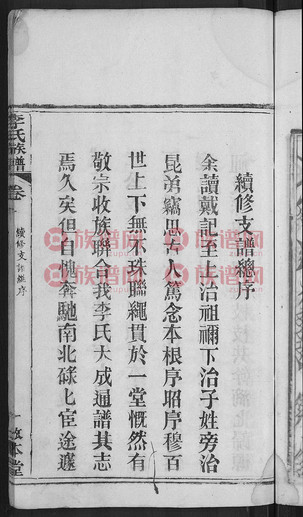 續修支譜總序
余讀戴記至上治祖禰下治子姓旁治
昆弟竊思古人篤念本根序昭序穆百
世上下無不珠聯繩貫於一堂慨然有
敬宗收族聯合我李氏大成通譜其志
焉久矣但自愧奔馳南北碌碌宦途遽
李氏族譜
卷
續修支譜總序
一
敦本堂
族譜网